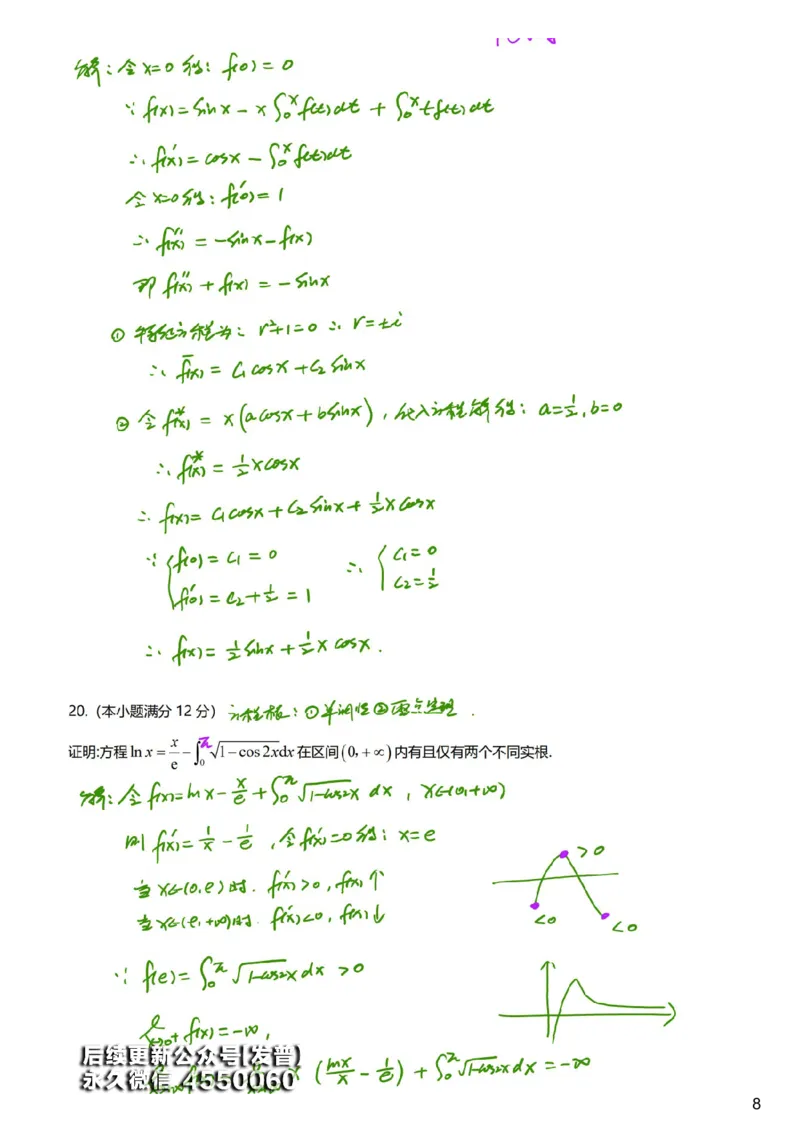 解：令x=0得：f(0)=0
∵ f(x)=sinx-x∫₀ˣf(t)dt+∫₀ˣtf(t)dt
∴ f'(x)=cosx-∫₀ˣf(t)dt
令x=0得：f'(0)=1
∴ f''(x)=-sinx-f(x)
即 f''(x)+f(x)=-sinx
① 特征方程为：r²+1=0 ∴ r=±i
∴ f̄(x)=C₁cosx+C₂sinx
② 令f*(x)=x(acosx+bsinx)，代入方程解得：a=½，b=0
∴ f*(x)=½xcosx
∴ f(x)=C₁cosx+C₂sinx+½xcosx
∵ {f(0)=C₁=0 ∴ {C₁=0
f'(0)=C₂+½=1 C₂=½
∴ f(x)=½sinx+½xcosx.
20.（本小题满分 12 分）方程根：①单调性②零点定理.
证明:方程 ln x = x/e - ∫₀^π √(1-cos2x)dx 在区间(0,+∞)内有且仅有两个不同实根.
解：令f(x)=lnx-x/e+∫₀^π √(1-cos2x) dx，x∈(0,+∞)
则 f'(x)=1/x-1/e，令f'(x)=0得：x=e
当x∈(0,e)时. f'(x)>0，f(x)↑
当x∈(e,+∞)时. f'(x)<0，f(x)↓
>0
<0 <0
∵ f(e)=∫₀^π √(1-cos2x) dx >0
f(x)=-∞，
后续更新公众号[发曾]
x(lnx/x-1/e)+∫₀^π √(1-cos2x) dx=-∞
永久微信 4550060
8